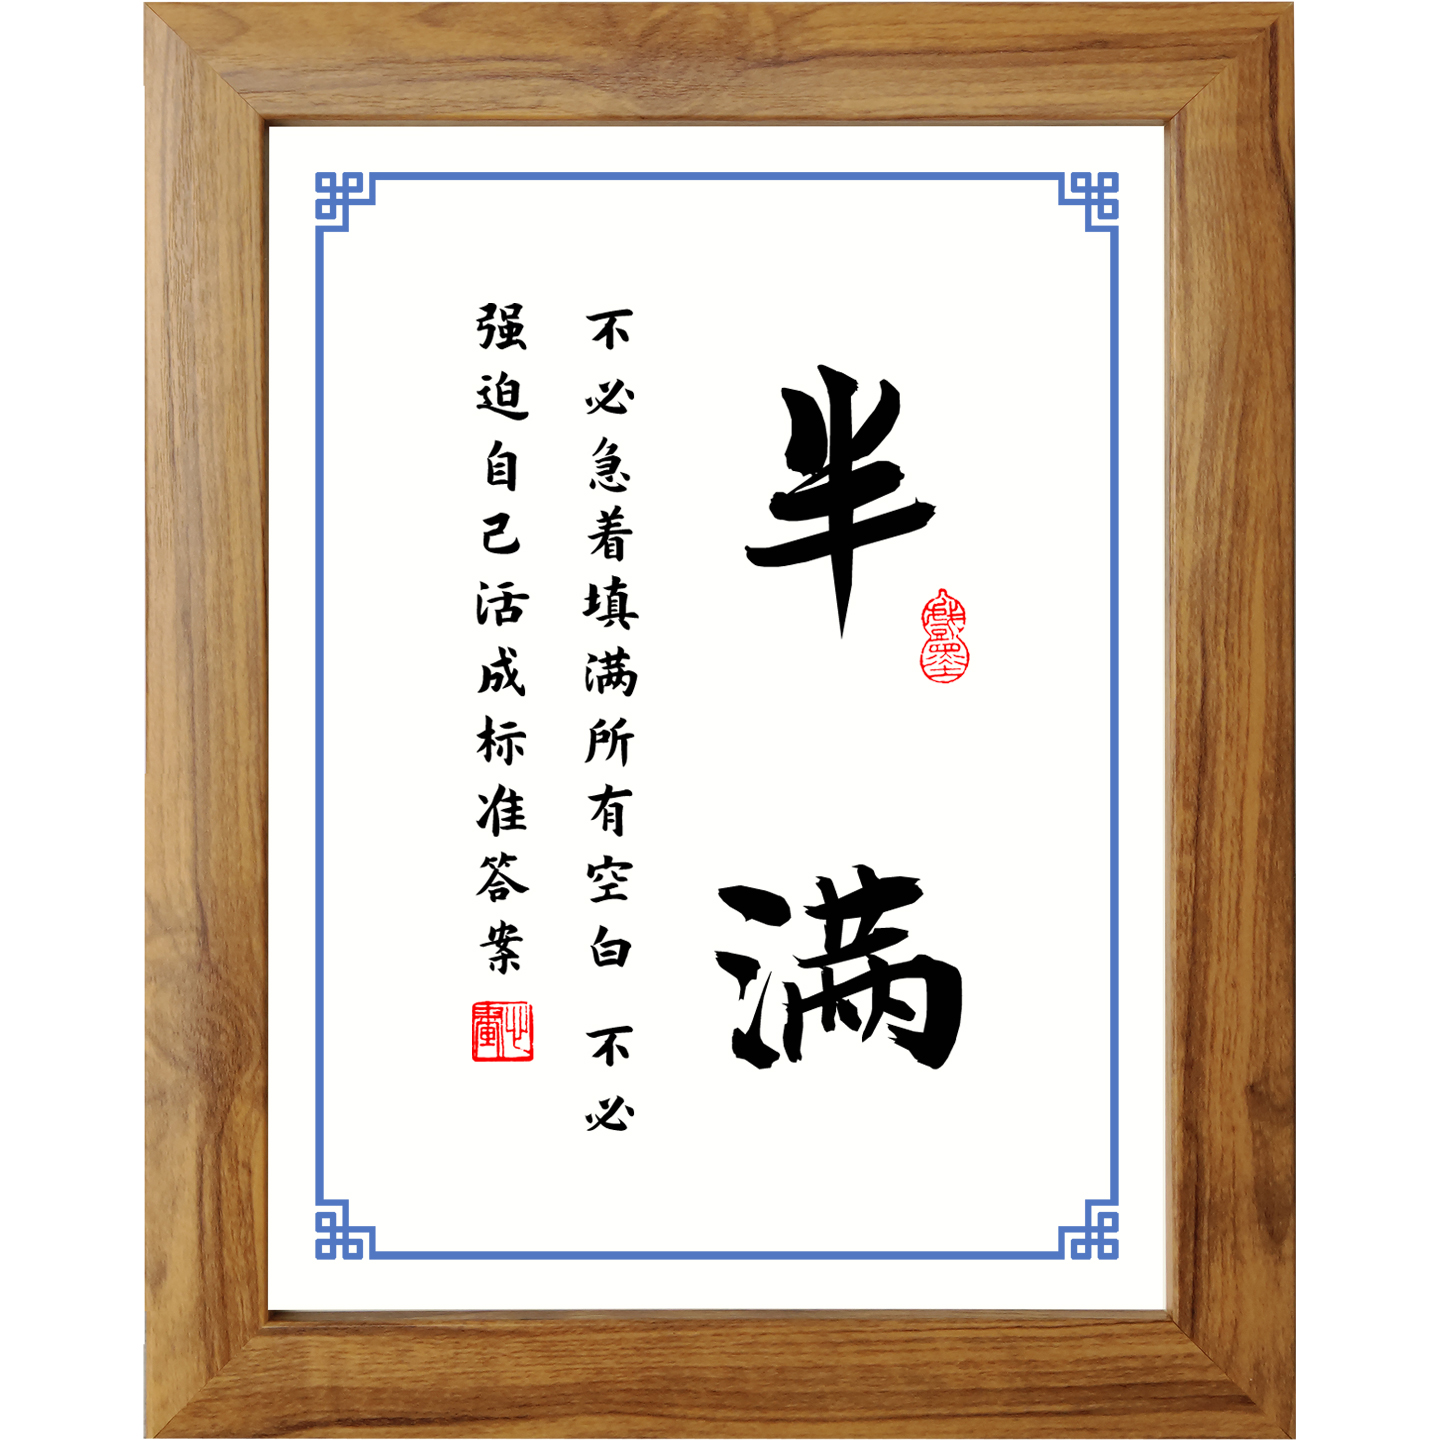 半满
不必急着填满所有空白 不必
强迫自己活成标准答案
戲墨